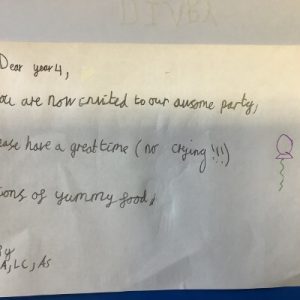 DIVBY
Dear year 4,
ou are now invited to our ausome party,
ease have a great time (no crying!!!)
ions of yummy food,
By
A, LC, AS